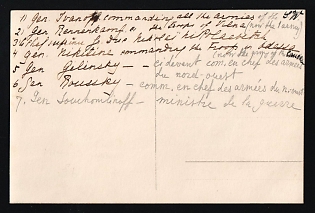 1) Gen Ivanoff commanding all the armies of the S.W.
2) Gen Rennenkampf of the Troops of Vilna (now the enemy)
3 Chef suprème G. Duc Nikolai Nikolaevitch
4 gen Nikitine commanding the Troops in Odessa
5 Gen Gelinsky — — ci devant com. en chef des armées du nord-ouest
6 Gen Roussky — comm. en chef des armées du n. ouest
7. Gen Souchomlinoff — ministre de la guerre